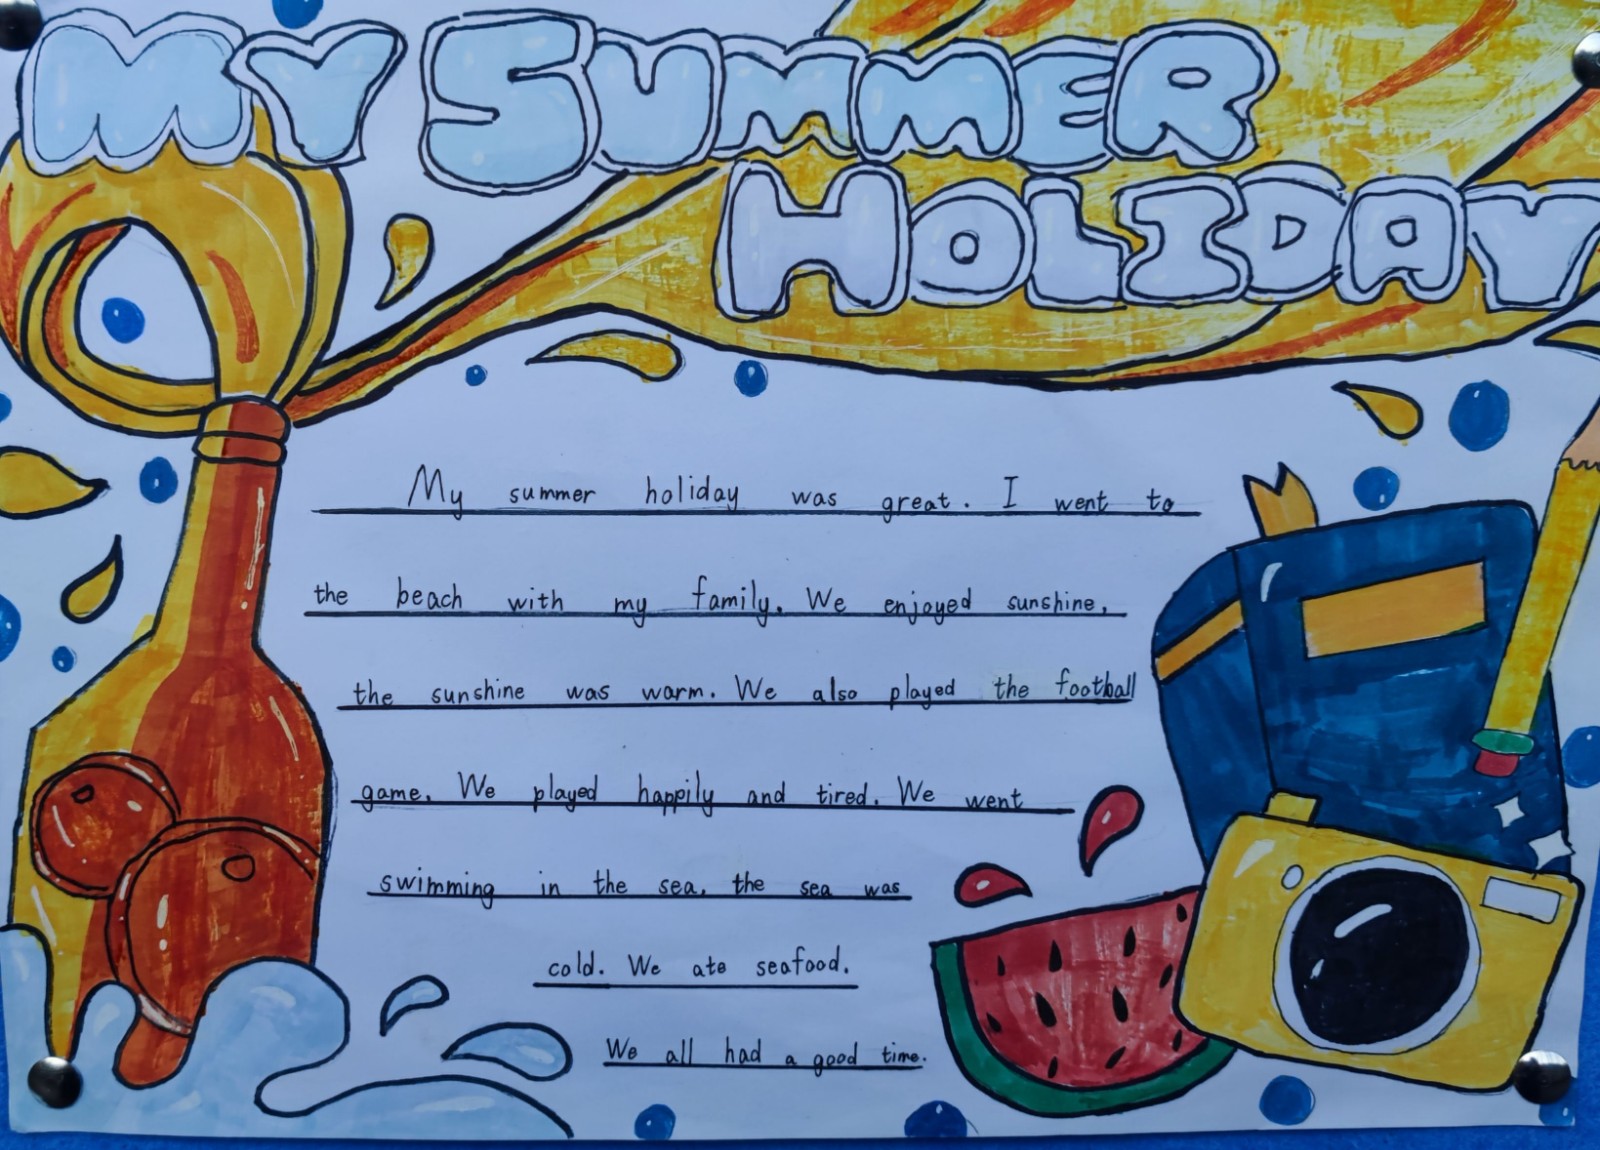 MY SUMMER
HOLIDAY
My summer holiday was great. I went to
the beach with my family. We enjoyed sunshine,
the sunshine was warm. We also played the football
game. We played happily and tired. We went
swimming in the sea. the sea was
cold. We ate seafood.
We all had a good time.